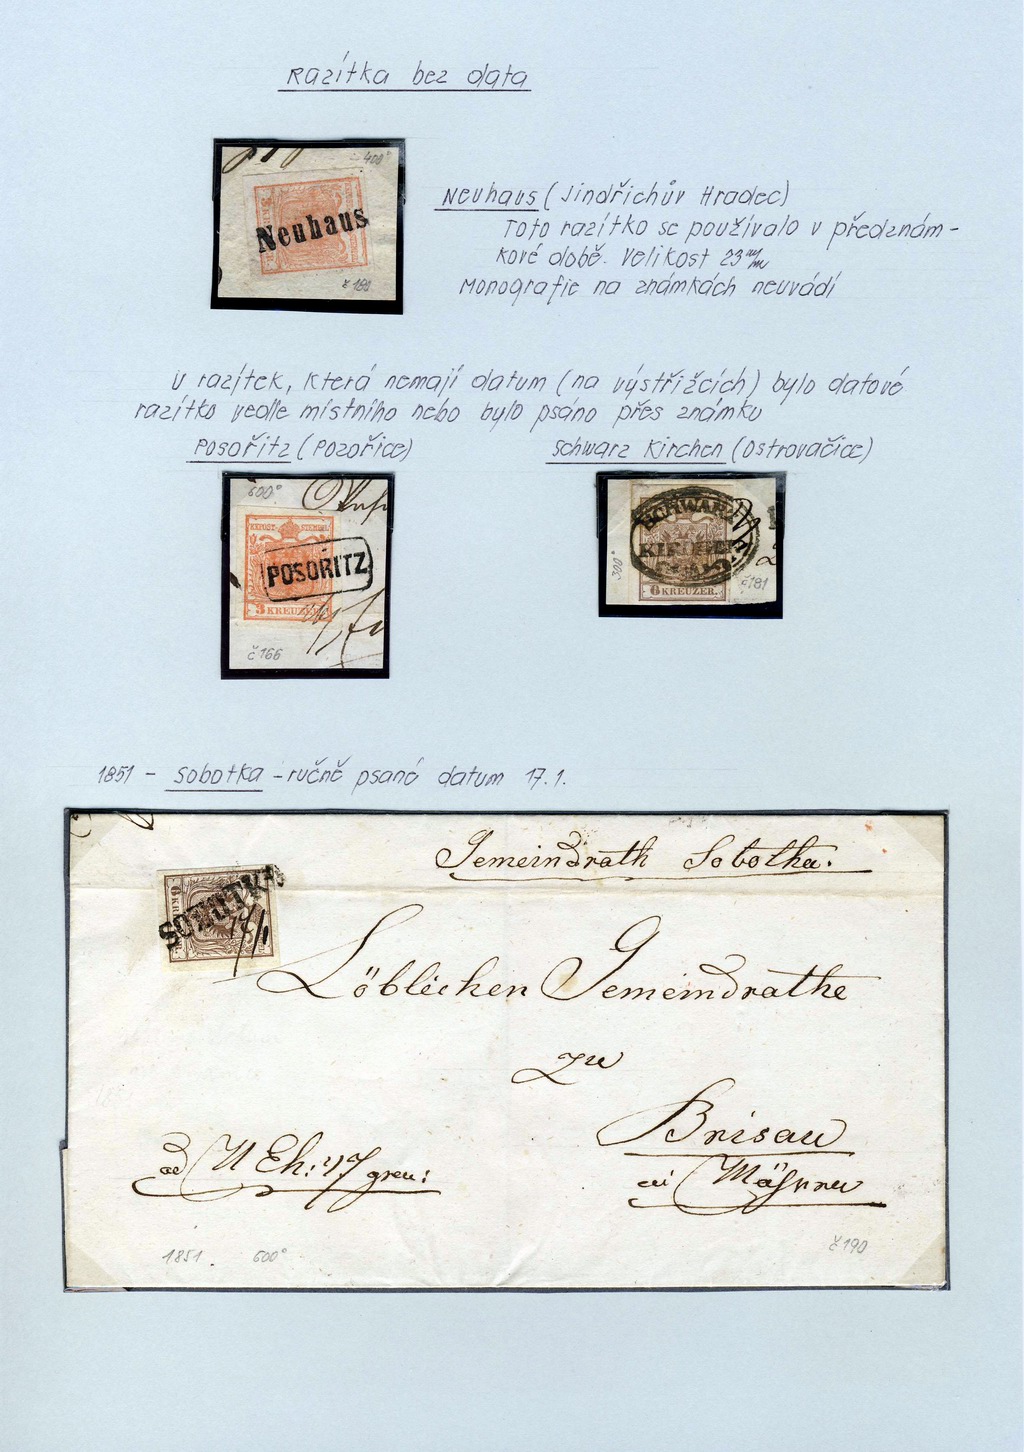 Razítka bez data
400°
Neuhaus
č 189
Neuhaus (Jindřichův Hradec)
Toto razítko se používalo v předznám-
kové době. Velikost 23 m/m
Monografie na známkách neuvádí
U razítek, která nemají datum (na výstřižcích) bylo datové
razítko vedle místního nebo bylo psáno přes známku
Posořitz (Pozořice)
Schwarz Kirchen (Ostrovačice)
600°
KKPOST-STEMPEL
POSORITZ
3 KREUZER
č 166
SCHWARZ
KIRCHEN
300°
6 KREUZER.
č 181
1851 - Sobotka - ručně psané datum 17.1.
Gemeindrath Sobotka.
SOBOTKA
6 KR
17/1
Löblichen Gemeindrathe
zu
Brisau
in Mähren
ad N Eh:
1851. 600°
č 190